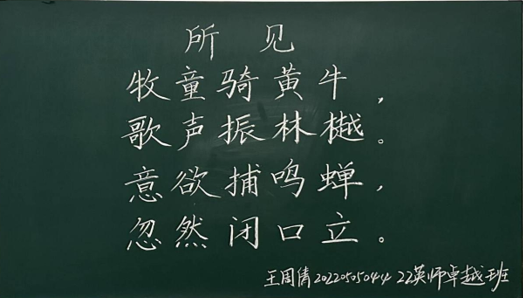 所见
牧童骑黄牛，
歌声振林樾。
意欲捕鸣蝉，
忽然闭口立。
王周倩 20220505044 22英师卓越班